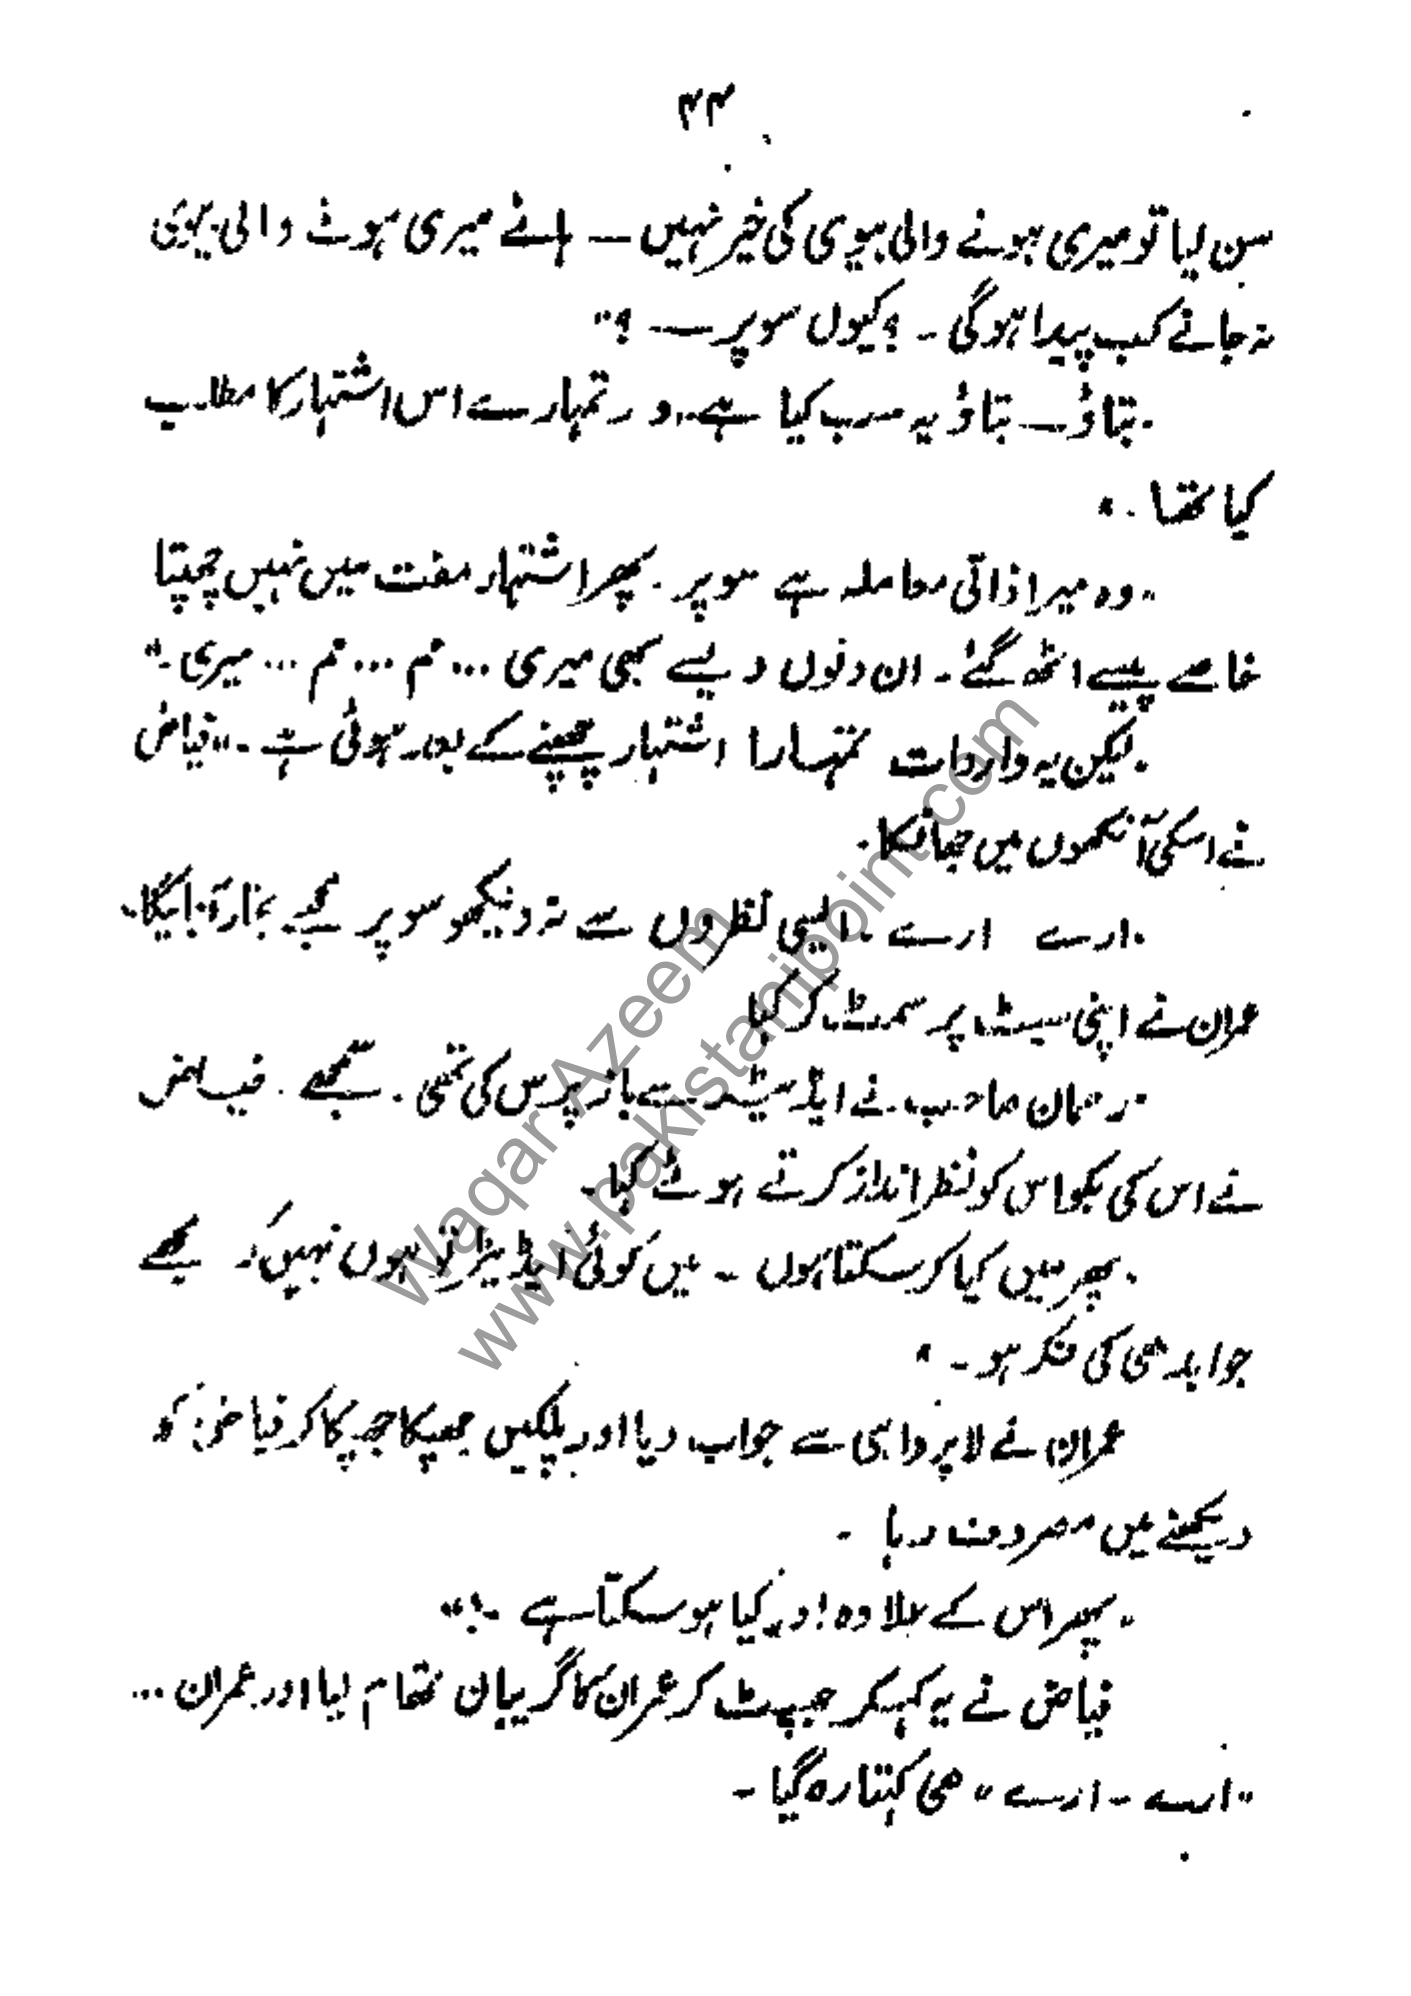 ۴۴
سن لیا تو میری ہونے والی بیوی کی خیر نہیں — ہائے میری ہونے والی بیوی
نہ جانے کب پیدا ہوگی ۔ ؟ کیوں سوپر — ؟"
"بتاؤ — بتاؤ یہ سب کیا ہے۔ اور تمہارے اس اشتہار کا مطلب
کیا تھا ۔"
"وہ میرا ذاتی معاملہ ہے سوپر ۔ پھر اشتہار مفت میں نہیں چھپتا
خاصے پیسے اٹھ گئے ۔ ان دنوں ویسے بھی میری ... م ... م ... میری ۔"
"لیکن یہ واردات تمہارا اشتہار چھپنے کے بعد ہوئی ہے ۔" فیاض
نے اسکی آنکھوں میں جھانکا ۔
"ارے ارے ۔ ایسی نظروں سے نہ دیکھو سوپر مجھے بخار آ جائیگا ۔
عمران نے اپنی سیٹ پر سمٹ کر کہا
"رحمان صاحب نے ایڈیٹر سے باز پرس کی تھی ۔ سمجھے ۔ فیاض
نے اس کی بکواس کو نظر انداز کرتے ہوئے کہا ۔
"پھر میں کیا کر سکتا ہوں ۔ میں کوئی ایڈیٹر تو ہوں نہیں کہ مجھے
جوابدھی کی فکر ہو ۔"
عمران نے لاپرواہی سے جواب دیا اور پلکیں جھپکا جھپکا کر فیاض کو
دیکھنے میں مصروف رہا ۔
"پھر اس کے علاوہ اور کیا ہو سکتا ہے ۔؟"
فیاض نے یہ کہہ کر جھپٹ کر عمران کا گریبان تھام لیا اور عمران ...
"ارے ۔ ارے" ھی کہتا رہ گیا ۔
Waqar Azeem
www.pakistanipoint.com